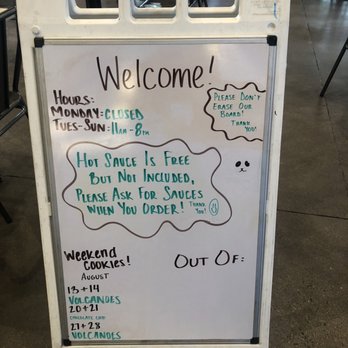 Welcome!
Hours:
Monday: Closed
Tues-Sun: 11am-8pm
Please Don't
Erase Our
Board!
Thank
You!
Hot Sauce Is Free
But Not Included,
Please Ask For Sauces
When You Order! Thank
You!
Weekend
Cookies!
August
13+14
Volcandes
20+21
Chocolate Chip
27+28
Volcandes
Out Of: